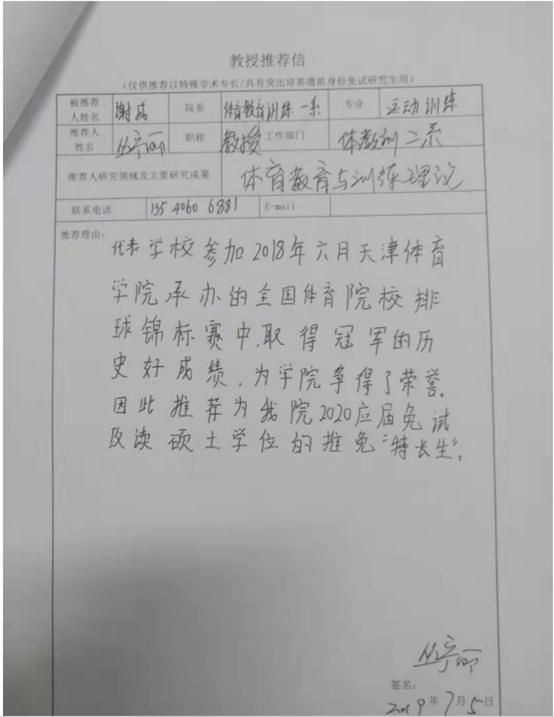 教授推荐信
（仅供推荐以特殊学术专长/具有突出培养潜质身份免试研究生用）
被推荐人姓名 谢成 院系 体育教育训练一系 专业 运动训练
推荐人姓名 丛宁丽 职称 教授 工作部门 体教训二系
推荐人研究领域及主要研究成果 体育教育与训练理论
联系电话 135 4060 6881 E-mail
推荐理由：
代表学校参加2018年六月天津体育
学院承办的全国体育院校排
球锦标赛中，取得冠军的历
史好成绩，为学院争得了荣誉。
因此推荐为我院2020应届免试
攻读硕士学位的推免“特长生”。
丛宁丽
签名：
2019年7月5日